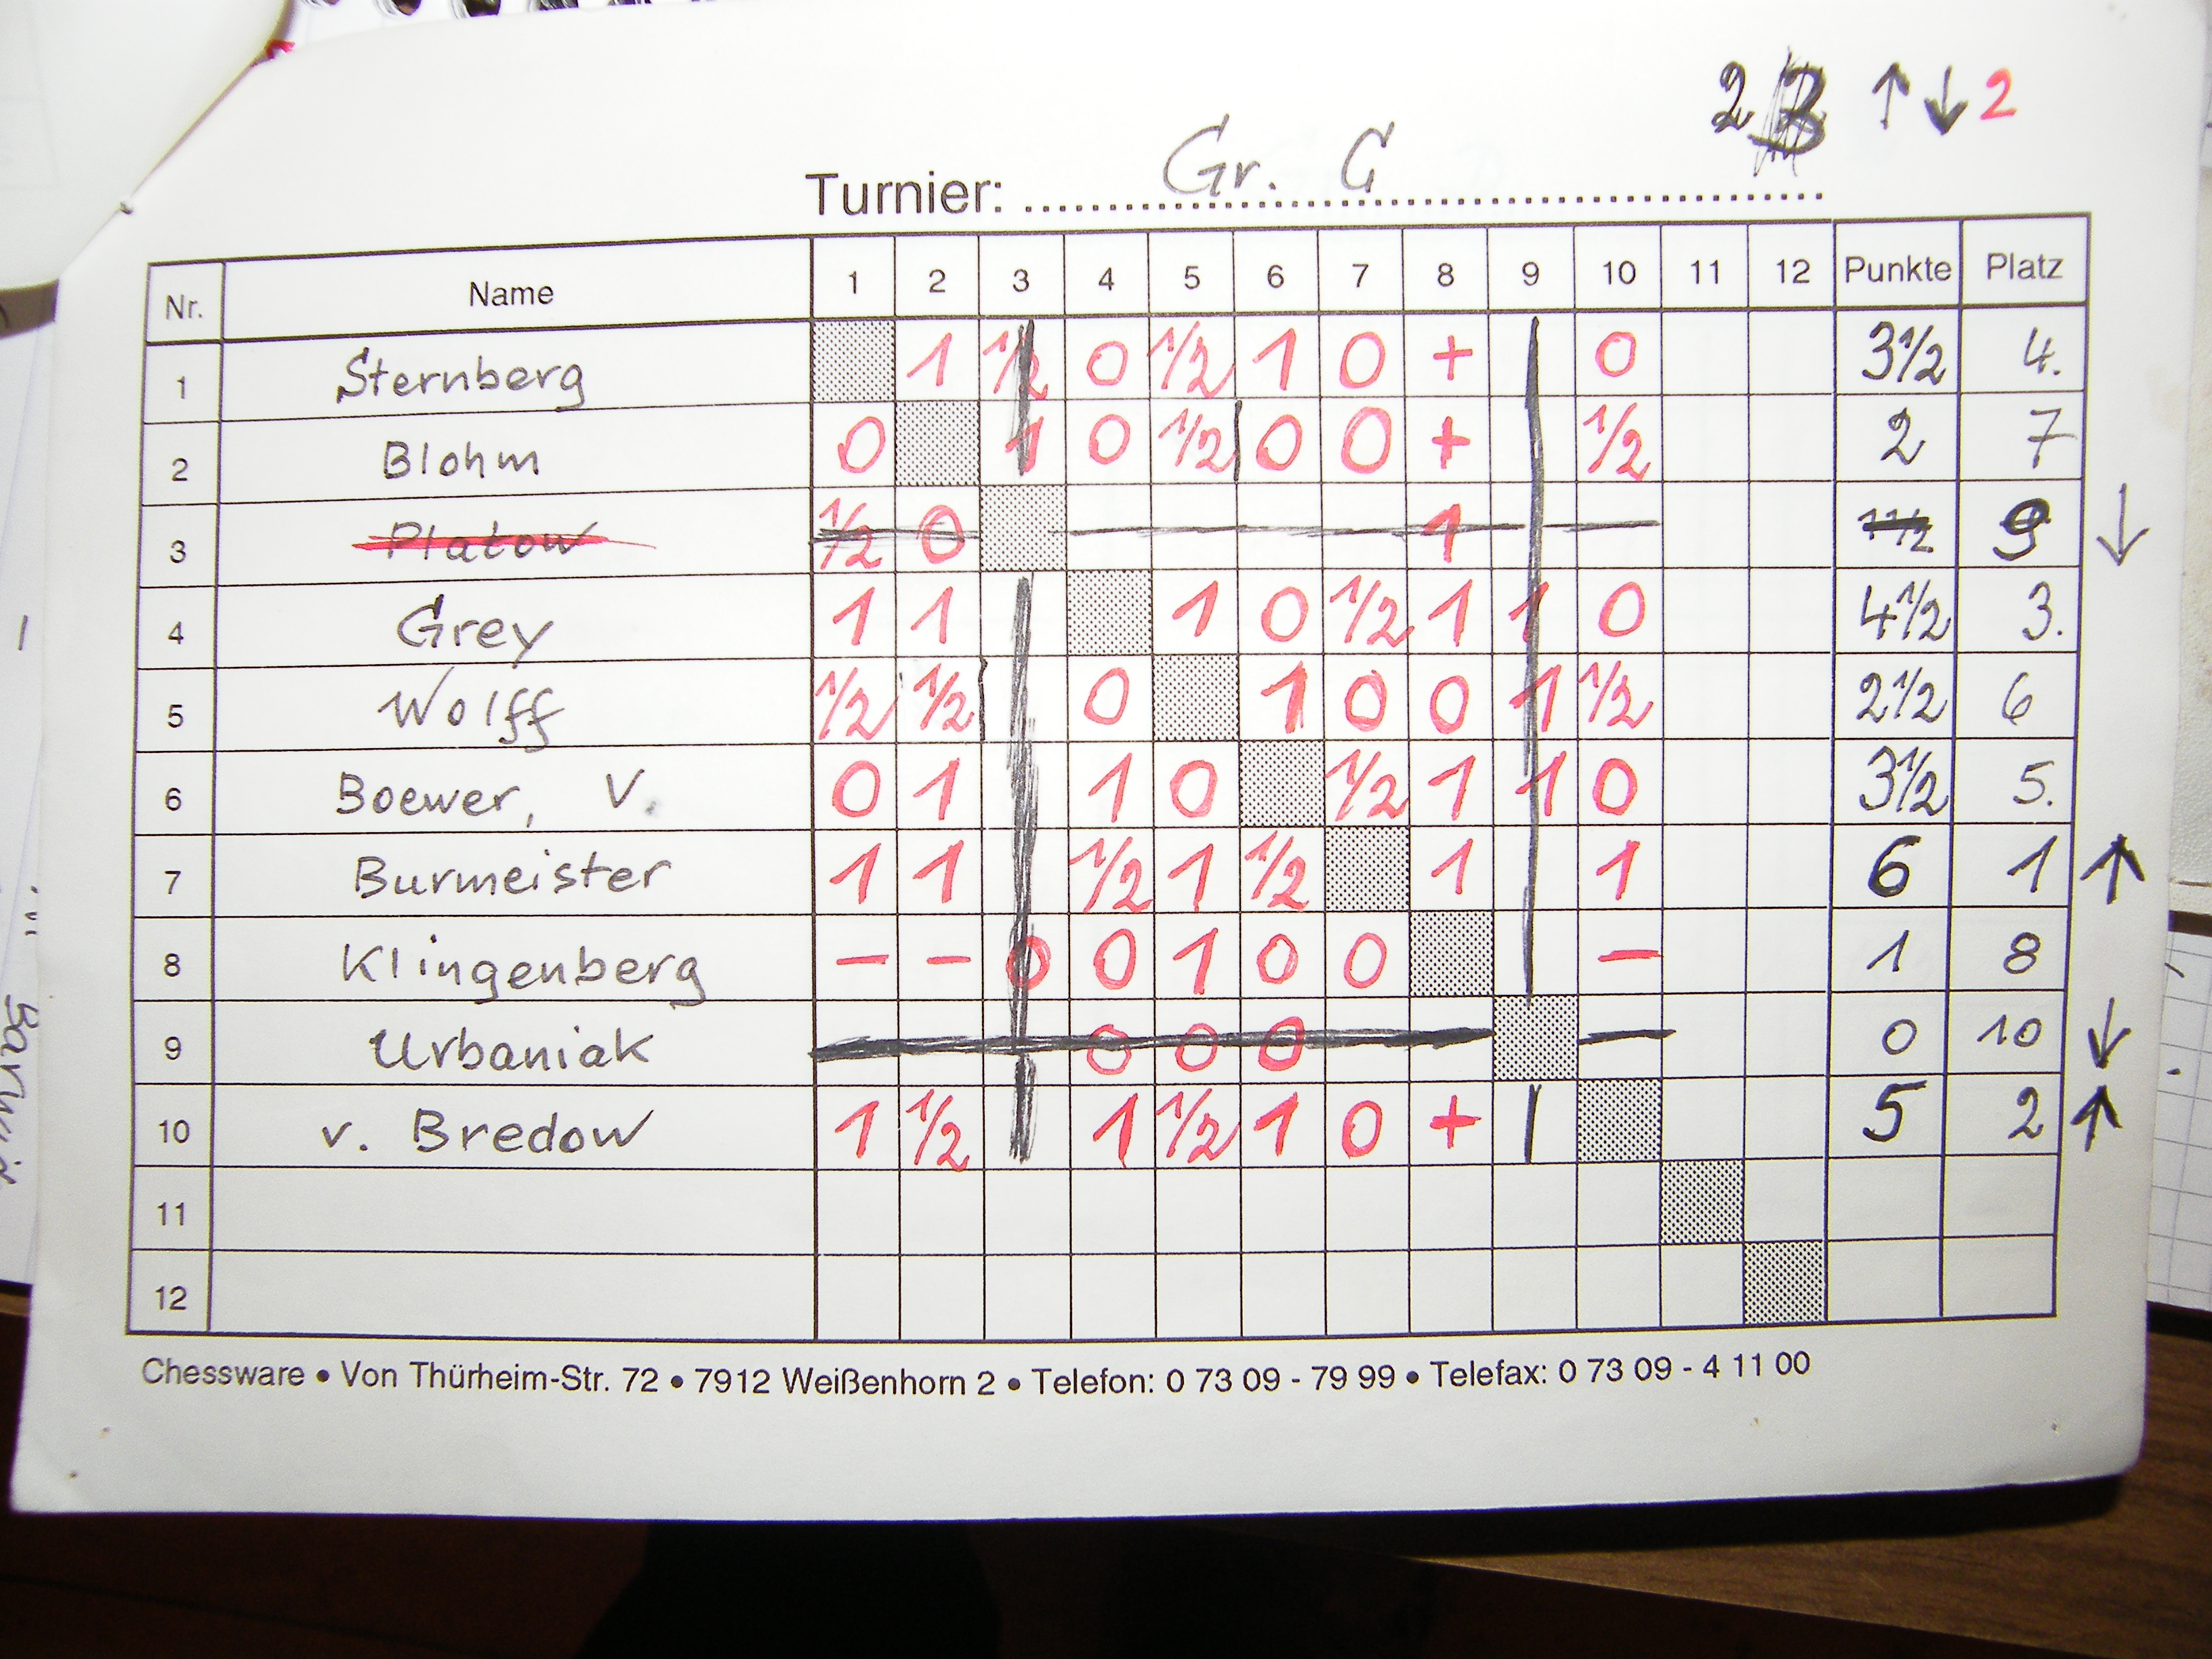 2 ↑ ↓ 2
Turnier: Gr. C
Nr. Name 1 2 3 4 5 6 7 8 9 10 11 12 Punkte Platz
1 Sternberg 1 1/2 0 1/2 1 0 + 0 3 1/2 4.
2 Blohm 0 1 0 1/2 0 0 + 1/2 2 7
3 Platow 1/2 0 1 1 1/2 9 ↓
4 Grey 1 1 1 0 1/2 1 1 0 4 1/2 3.
5 Wolff 1/2 1/2 0 1 0 0 1 1/2 2 1/2 6
6 Boewer, V. 0 1 1 0 1/2 1 1 0 3 1/2 5.
7 Burmeister 1 1 1/2 1 1/2 1 1 6 1 ↑
8 Klingenberg – – 0 0 1 0 0 – 1 8
9 Urbaniak 0 0 0 0 10 ↓
10 v. Bredow 1 1/2 1 1/2 1 0 + 5 2 ↑
11
12
Chessware • Von Thürheim-Str. 72 • 7912 Weißenhorn 2 • Telefon: 0 73 09 - 79 99 • Telefax: 0 73 09 - 4 11 00